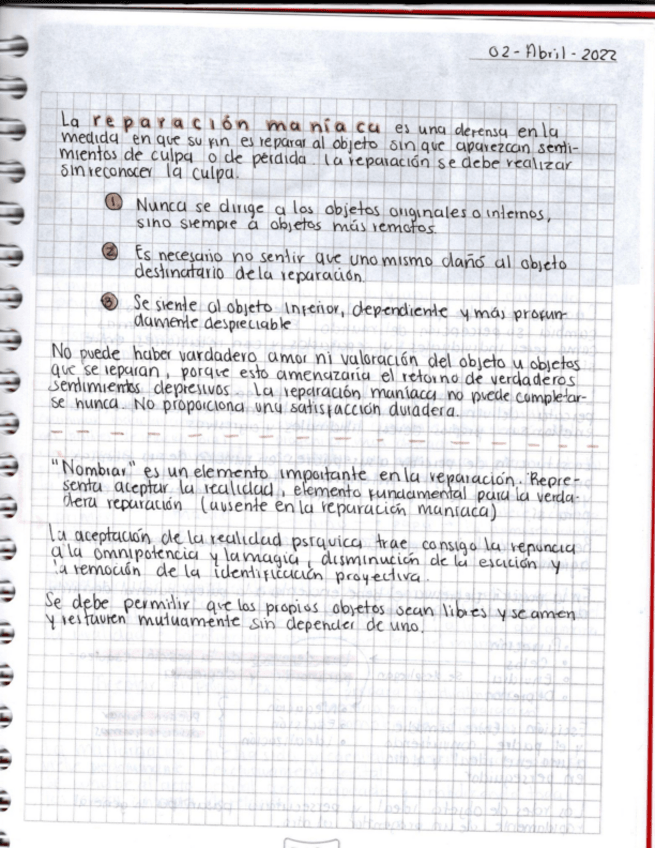 02-Abril-2022
La reparación maníaca es una defensa en la
medida en que su fin es reparar al objeto sin que aparezcan senti-
mientos de culpa o de pérdida. La reparación se debe realizar
sin reconocer la culpa.
1 Nunca se dirige a los objetos originales o internos,
sino siempre a objetos más remotos.
2 Es necesario no sentir que uno mismo dañó al objeto
destinatario de la reparación.
3 Se siente al objeto inferior, dependiente y más profun-
damente despreciable
No puede haber vardadero amor ni valoración del objeto u objetos
que se reparan, porque esto amenazaría el retorno de verdaderos
sentimientos depresivos. La reparación maníaca no puede completar-
se nunca. No proporciona una satisfacción duradera.
"Nombrar" es un elemento importante en la reparación. Repre-
senta aceptar la realidad, elemento fundamental para la verda-
dera reparación (ausente en la reparación maníaca)
La aceptación de la realidad psíquica trae consigo la renuncia
a la omnipotencia y la magia, disminución de la escición y
la remoción de la identificación proyectiva.
Se debe permitir que los propios objetos sean libres y se amen
y restauren mutuamente sin depender de uno.